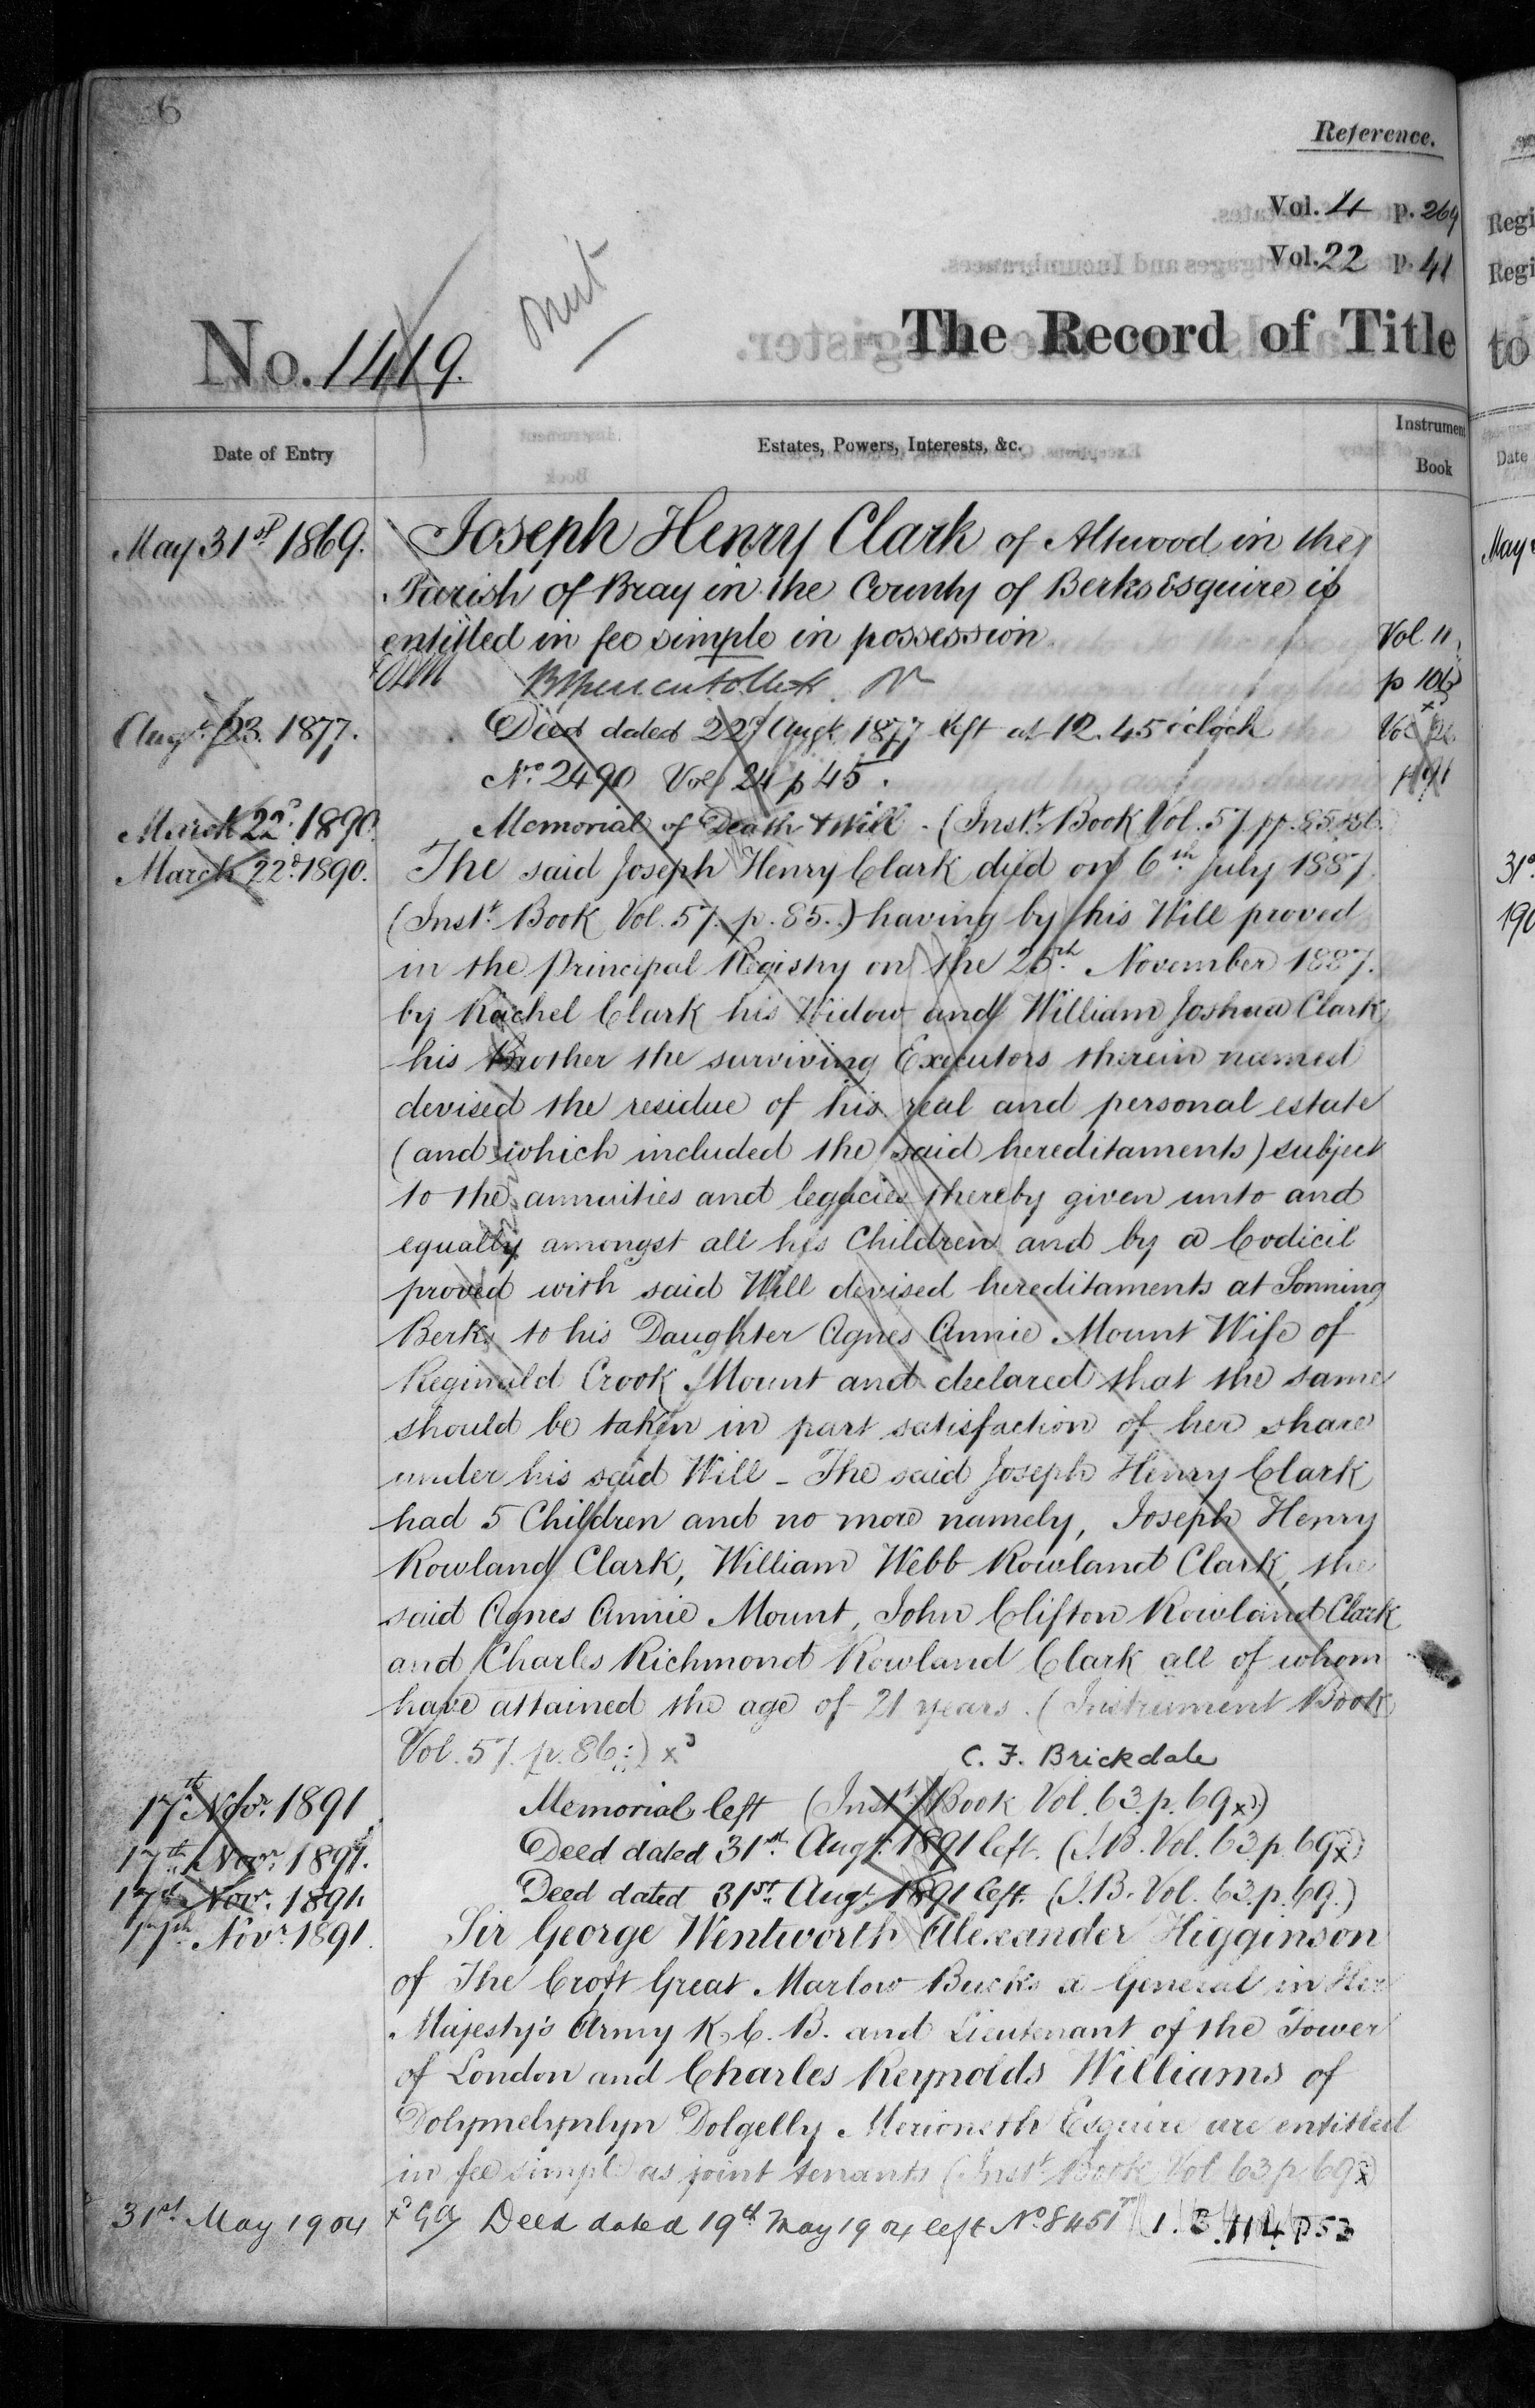 6
Reference.
Vol. 4 p. 269
Vol. 22 p. 41
No. 1419.
The Record of Title
Date of Entry
Estates, Powers, Interests, &c.
Instrument
Book
May 31st 1869. Joseph Henry Clark of Altwood in the
Parish of Bray in the County of Berks Esquire is
entitled in fee simple in possession. Vol. 11
p 106
Augt. 23. 1877. Deed dated 22nd Augt. 1877 left at 12.45 o'clock
No. 2490 Vol 24 p 45.
March 22d. 1890. Memorial of Death & Will - (Inst. Book Vol. 57. pp. 85
March 22d. 1890. The said Joseph Henry Clark died on 6th. July 1887.
(Inst. Book Vol. 57. p. 85.) having by his Will proved
in the Principal Registry on the 25th. November 1887.
by Rachel Clark his Widow and William Joshua Clark
his Brother the surviving Executors therein named
devised the residue of his real and personal estate
(and which included the said hereditaments) subject
to the annuities and legacies thereby given unto and
equally amongst all his Children and by a Codicil
proved with said Will devised hereditaments at Sonning
Berks to his Daughter Agnes Annie Mount Wife of
Reginald Crook Mount and declared that the same
should be taken in part satisfaction of her share
under his said Will - The said Joseph Henry Clark
had 5 Children and no more namely, Joseph Henry
Rowland Clark, William Webb Rowland Clark, the
said Agnes Annie Mount, John Clifton Rowland Clark
and Charles Richmond Rowland Clark all of whom
have attained the age of 21 years. (Instrument Book
Vol. 57. p. 86.) x
C. F. Brickdale
17th Novr. 1891 Memorial left (Inst. Book Vol. 63. p. 69 x)
17th. Novr. 1891. Deed dated 31st. Augt. 1891 left. (I.B. Vol. 63. p. 69 x)
17th Novr. 1891. Deed dated 31st. Augt. 1891 left. (I.B. Vol. 63. p. 69.)
17th Novr. 1891. Sir George Wentworth Alexander Higginson
of The Croft Great Marlow Bucks a General in Her
Majesty's Army K.C.B. and Lieutenant of the Tower
of London and Charles Reynolds Williams of
Dolymelynlyn Dolgelly Merioneth Esquire are entitled
in fee simple as joint tenants (Inst. Book Vol 63 p 69 x)
31st May 1904 Deed dated 19th May 1904 left No. 8451 I.B. 114 p 53
Regi
Regi
to
Date
May
31s
190